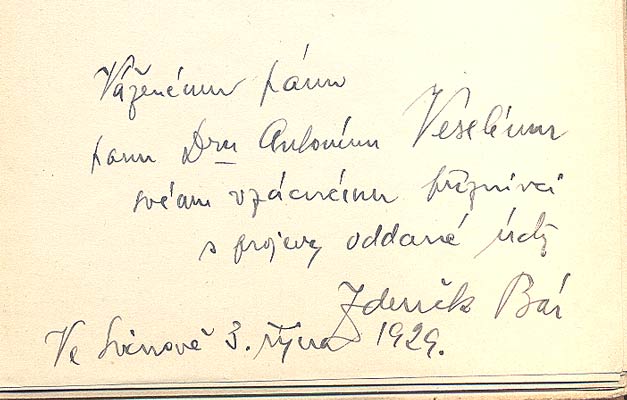 Váženému pánu
panu Dru Antonínu Veselému
svému vzácnému příznivci
s projevy oddané úcty
Zdeněk Bár
Ve Svinově 3. října 1929.